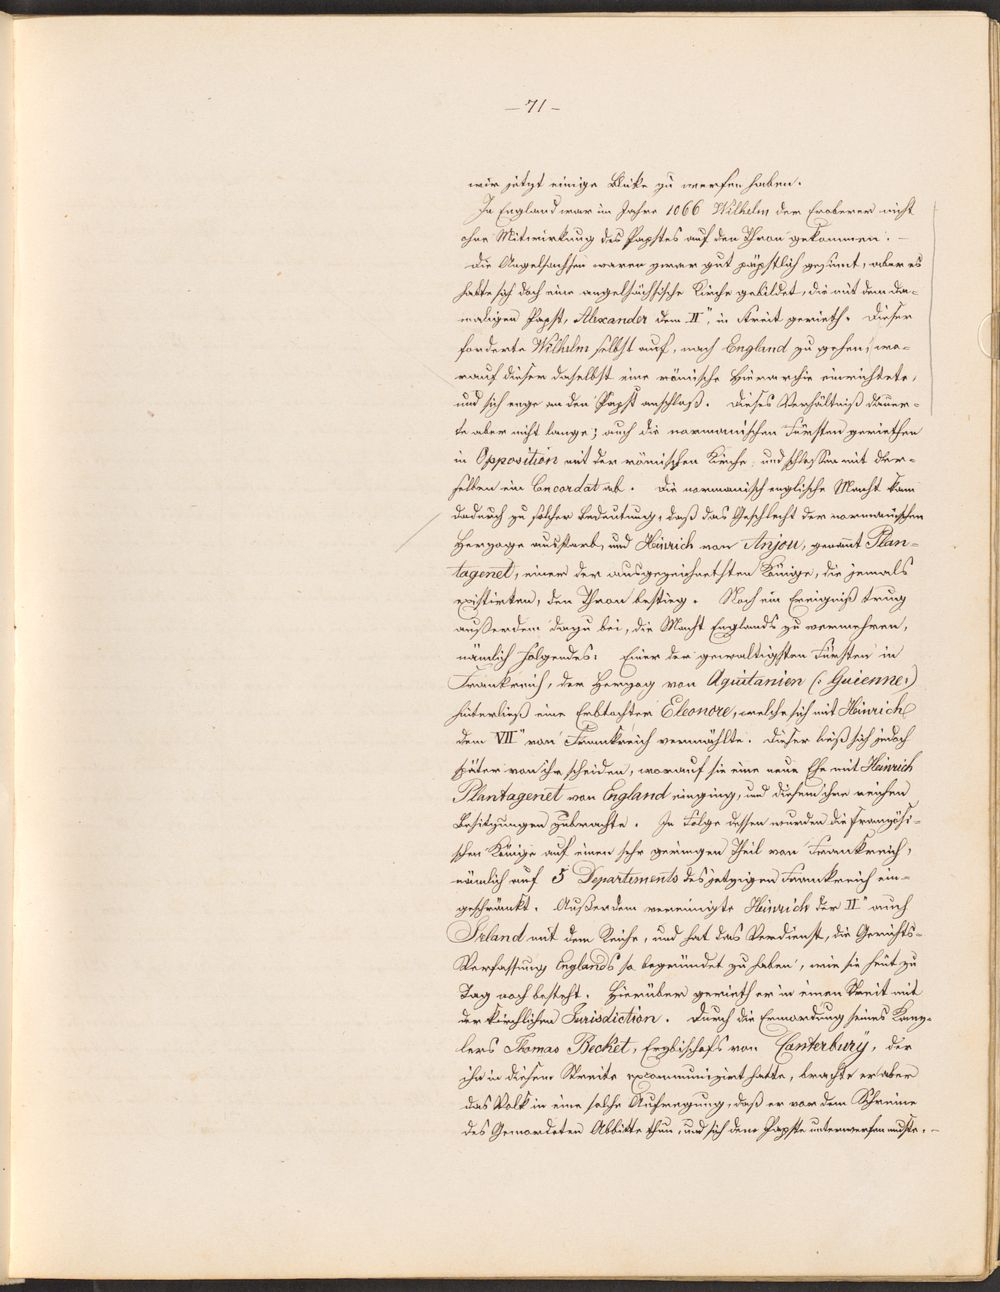 – 71 –
wir jetzt einige Blicke zu werfen haben.
In England war im Jahre 1066 Wilhelm der Eroberer nicht
ohne Mitwirkung des Papstes auf den Thron gekommen. –
Die Angelsachsen waren zwar gut päpstlich gesinnt, aber es
hatte sich doch eine angelsächsische Kirche gebildet, die mit dem da=
maligen Papst, Alexander dem II", in Streit gerieth. Dieser
forderte Wilhelm selbst auf, nach England zu gehen, wo=
rauf dieser daselbst eine römische Hierarchie einrichtete,
und sich enge an den Papst anschloß. Dieses Verhältniß dauer=
te aber nicht lange; auch die normanischen Fürsten geriethen
in Opposition mit der römischen Kirche, und schlossen mit der=
selben ein Concordat ab. Die normanisch englische Macht kam
dadurch zu solcher Bedeutung, daß das Geschlecht der normanischen
Herzoge ausstarb, und Heinrich von Anjou, genannt Plan=
tagenet, einer der ausgezeichnetsten Könige, die jemals
existirten, den Thron bestieg. Noch ein Ereigniß trug
außerdem dazu bei, die Macht Englands zu vermehren,
nämlich folgendes: Einer der gewaltigsten Fürsten in
Frankreich, der Herzog von Aquitanien (: Guienne:)
hinterließ eine Erbtochter Eleonore, welche sich mit Heinrich
dem VII" von Frankreich vermählte. Dieser ließ sich jedoch
später von ihr scheiden, worauf sie eine neue Ehe mit Heinrich
Plantagenet von England einging, und diesem ihre reichen
Besitzungen zubrachte. In Folge dessen wurden die französi=
schen Könige auf einen sehr geringen Theil von Frankreich,
nämlich auf 5 Departements des jetzigen Frankreich ein=
geschränkt. Außerdem vereinigte Heinrich der II" auch
Irland mit dem Reiche, und hat das Verdienst, die Gerichts=
Verfassung Englands so begründet zu haben, wie sie heut zu
Tag noch besteht. Hierüber gerieth er in einen Streit mit
der kirchlichen Jurisdiction. Durch die Ermordung seines Kanz=
lers Thomas Becket, Erzbischofs von Canterbury, der
ihn in diesem Streite excommunizirt hatte, brachte er aber
das Volk in eine solche Aufregung, daß er vor dem Schreine
des Gemordeten Abbitte thun, und sich dem Papste unterwerfen mußte. –